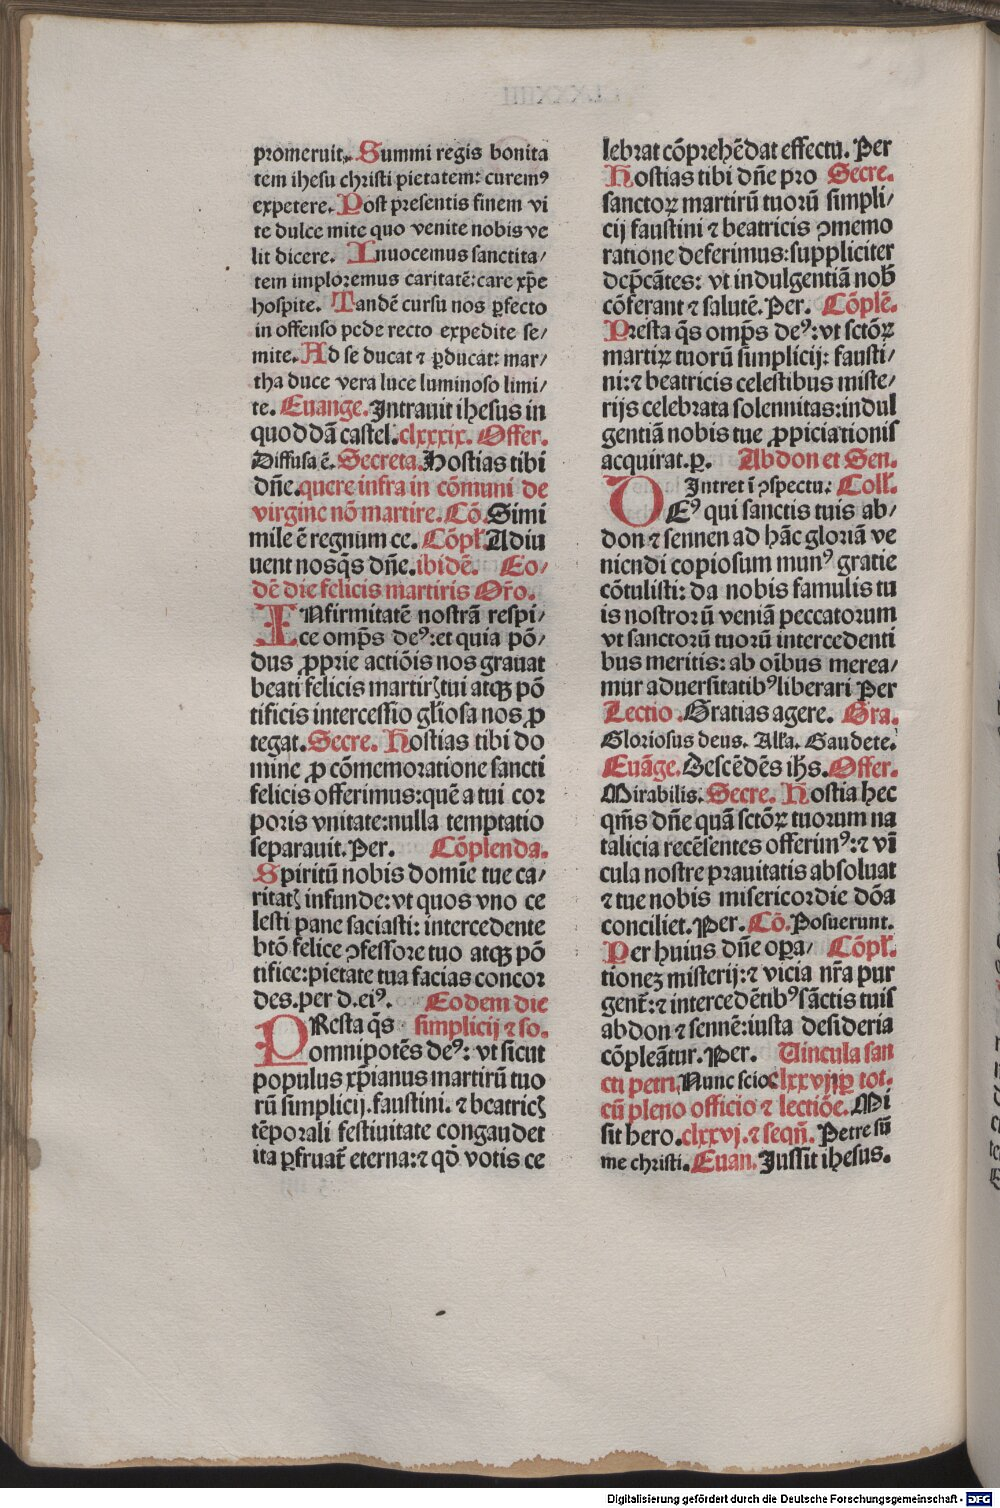 promeruit. Summi regis bonita
tem ihesu christi pietatem: curemꝰ
expetere. Post presentis finem vi
te dulce mite quo venite nobis ve
lit dicere. Inuocemus sanctita/
tem imploremus caritatē: care xp̄e
hospite. Tandē cursu nos ꝑfecto
in offenso pede recto expedite se/
mite. Ad se ducat ⁊ ꝑducat: mar/
tha duce vera luce luminoso limi/
te. Euange. Intrauit ihesus in
quoddā castel. clxxxix. Offer.
Diffusa ē. Secreta. Hostias tibi
dn̄e. quere infra in cōmuni de
virgine nō martire. Cō. Simi
mile ē regnum ce. Cōpl̄. Adiu
uent nosq̄s dn̄e. ibidē. Eo/
dē die felicis martiris Or̄o.
INfirmitatē nostrā respi/
ce omp̄s deꝰ: et quia pō/
dus ꝓprie actiōis nos grauat
beati felicis martirꝭ tui atqꝫ pō
tificis intercessio gl̄iosa nos ꝓ
tegat. Secre. Hostias tibi do
mine ꝓ cōmemoratione sancti
felicis offerimus: quē a tui cor
poris vnitate: nulla temptatio
separauit. Per. Cōplenda.
Spiritū nobis domīe tue ca/
ritatꝭ infunde: vt quos vno ce
lesti pane saciasti: intercedente
btō felice ꝯfessore tuo atqꝫ pō
tifice: pietate tua facias concor
des. per d. eiꝰ. Eodem die
PResta q̄s simplicij ⁊ so.
omnipotēs deꝰ: vt sicut
populus xp̄ianus martirū tuo
rū simplicij. faustini. ⁊ beatricꝭ
tēporali festiuitate congaudet
ita ꝑfruat̄ eterna: ⁊ qd̄ votis ce
lebrat cōprehēdat effectu. Per
Hostias tibi dn̄e pro Secre.
sanctoꝝ martirū tuorū simpli/
cij faustini ⁊ beatricis ꝯmemo
ratione deferimus: suppliciter
dep̄cātes: vt indulgentiā nob̄
cōferant ⁊ salutē. Per. Cōplē.
Presta q̄s omp̄s deꝰ: vt sctōꝝ
martiꝝ tuorū simplicij: fausti/
ni: ⁊ beatricis celestibus miste/
rijs celebrata solennitas: indul
gentiā nobis tue ꝓpiciationis
acquirat. ꝑ. Abdon et Sen.
Intret ī ꝯspectu. Coll̄.
DEꝰ qui sanctis tuis ab/
don ⁊ sennen ad hāc gloriā ve
niendi copiosum munꝰ gratie
cōtulisti: da nobis famulis tu
is nostrorū veniā peccatorum
vt sanctorū tuorū intercedenti
bus meritis: ab oībus merea/
mur aduersitatibꝰ liberari Per
Lectio. Gratias agere. Gra.
Gloriosus deus. All̄a. Gaudete.
Euāge. Descēdēs ihs. Offer.
Mirabilis. Secre. Hostia hec
qm̄s dn̄e quā sctōꝝ tuorum na
talicia recēsentes offerimꝰ: ⁊ vī
cula nostre prauitatis absoluat
⁊ tue nobis misericordie dōa
conciliet. Per. Cō. Posuerunt.
Per huius dn̄e oꝑa/ Cōpl̄.
tionez misterij: ⁊ vicia nr̄a pur
gent̄: ⁊ intercedētibꝰ sāctis tuis
abdon ⁊ sennē: iusta desideria
cōpleātur. Per. Uincula san
cti petri, Nunc scio clxxvijꝑ tot.
cū pleno officio ⁊ lectiōe. Mi
sit hero. clxxvj. ⁊ seqn̄. Petre sū
me christi. Euan. Jussit ihesus.
Digitalisierung gefördert durch die Deutsche Forschungsgemeinschaft - DFG